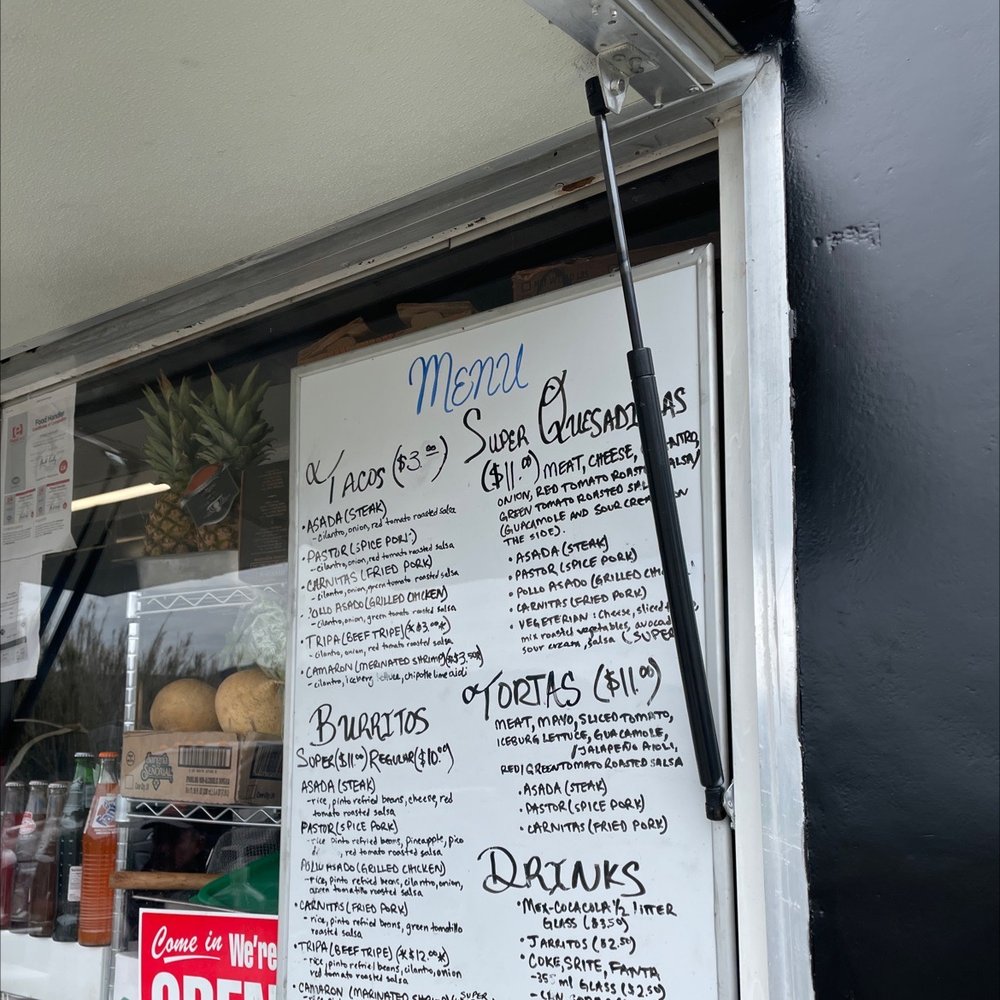 Food Handler
MENU
TACOS ($3.00)
• ASADA (STEAK)
- cilantro, onion, red tomato roasted salsa
• PASTOR (SPICE PORK)
- cilantro, onion, red tomato roasted salsa
• CARNITAS (FRIED PORK)
- cilantro, onion, green tomato roasted salsa
POLLO ASADO (GRILLED CHICKEN)
- cilantro, onion, green tomato roasted salsa
• TRIPA (BEEF TRIPE) (*$3.00*)
- cilantro, onion, red tomato roasted salsa
• CAMARON (MERINATED SHRIMP) (*$3.50*)
- cilantro, iceberg lettuce, chipotle lime aioli
BURRITOS
SUPER ($11.00) REGULAR ($10.00)
ASADA (STEAK)
- rice, pinto refried beans, cheese, red
tomato roasted salsa
PASTOR (SPICE PORK)
- rice pinto refried beans, pineapple, pico
, red tomato roasted salsa
POLLO ASADO (GRILLED CHICKEN)
- rice, pinto refried beans, cilantro, onion,
green tomatillo roasted salsa
• CARNITAS (FRIED PORK)
- rice, pinto refried beans, green tomatillo
roasted salsa
• TRIPA (BEEF TRIPE) (*$12.00*)
- rice, pinto refried beans, cilantro, onion
red tomato roasted salsa
• CAMARON (MARINATED SHRIMP) (SUPER
SUPER QUESADILLAS
($11.00) MEAT, CHEESE,
ONION, RED TOMATO ROASTED SALSA/
GREEN TOMATO ROASTED SAL
(GUACAMOLE AND SOUR CREAM ON
THE SIDE).
• ASADA (STEAK)
• PASTOR (SPICE PORK)
• POLLO ASADO (GRILLED CHI
• CARNITAS (FRIED PORK)
• VEGETERIAN: cheese, sliced
mix roasted vegetables, avocad
sour cream, salsa (SUPER
TORTAS ($11.00)
MEAT, MAYO, SLICED TOMATO,
ICEBURG LETTUCE, GUACAMOLE,
/JALAPEÑO AIOLI,
RED/GREEN TOMATO ROASTED SALSA
• ASADA (STEAK)
• PASTOR (SPICE PORK)
• CARNITAS (FRIED PORK)
DRINKS
• MEX-COLACOLA 1/2 LITTER
GLASS ($3.50)
• JARRITOS ($2.50)
• COKE, SRITE, FANTA
- 355 ml GLASS ($2.50)
SEÑORIAL
Come in We're
OPEN